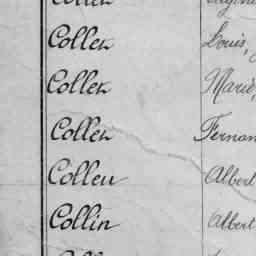 Collet Louis,
Collet Marie,
Collet Fernan
Colleu Albert
Collin Albert